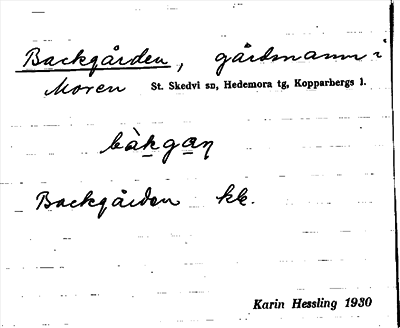 Backgården, gårdnamn i
Moren St. Skedvi sn, Hedemora tg, Kopparbergs l.
bàkgaṇ
Backgården kk.
Karin Hessling 1930